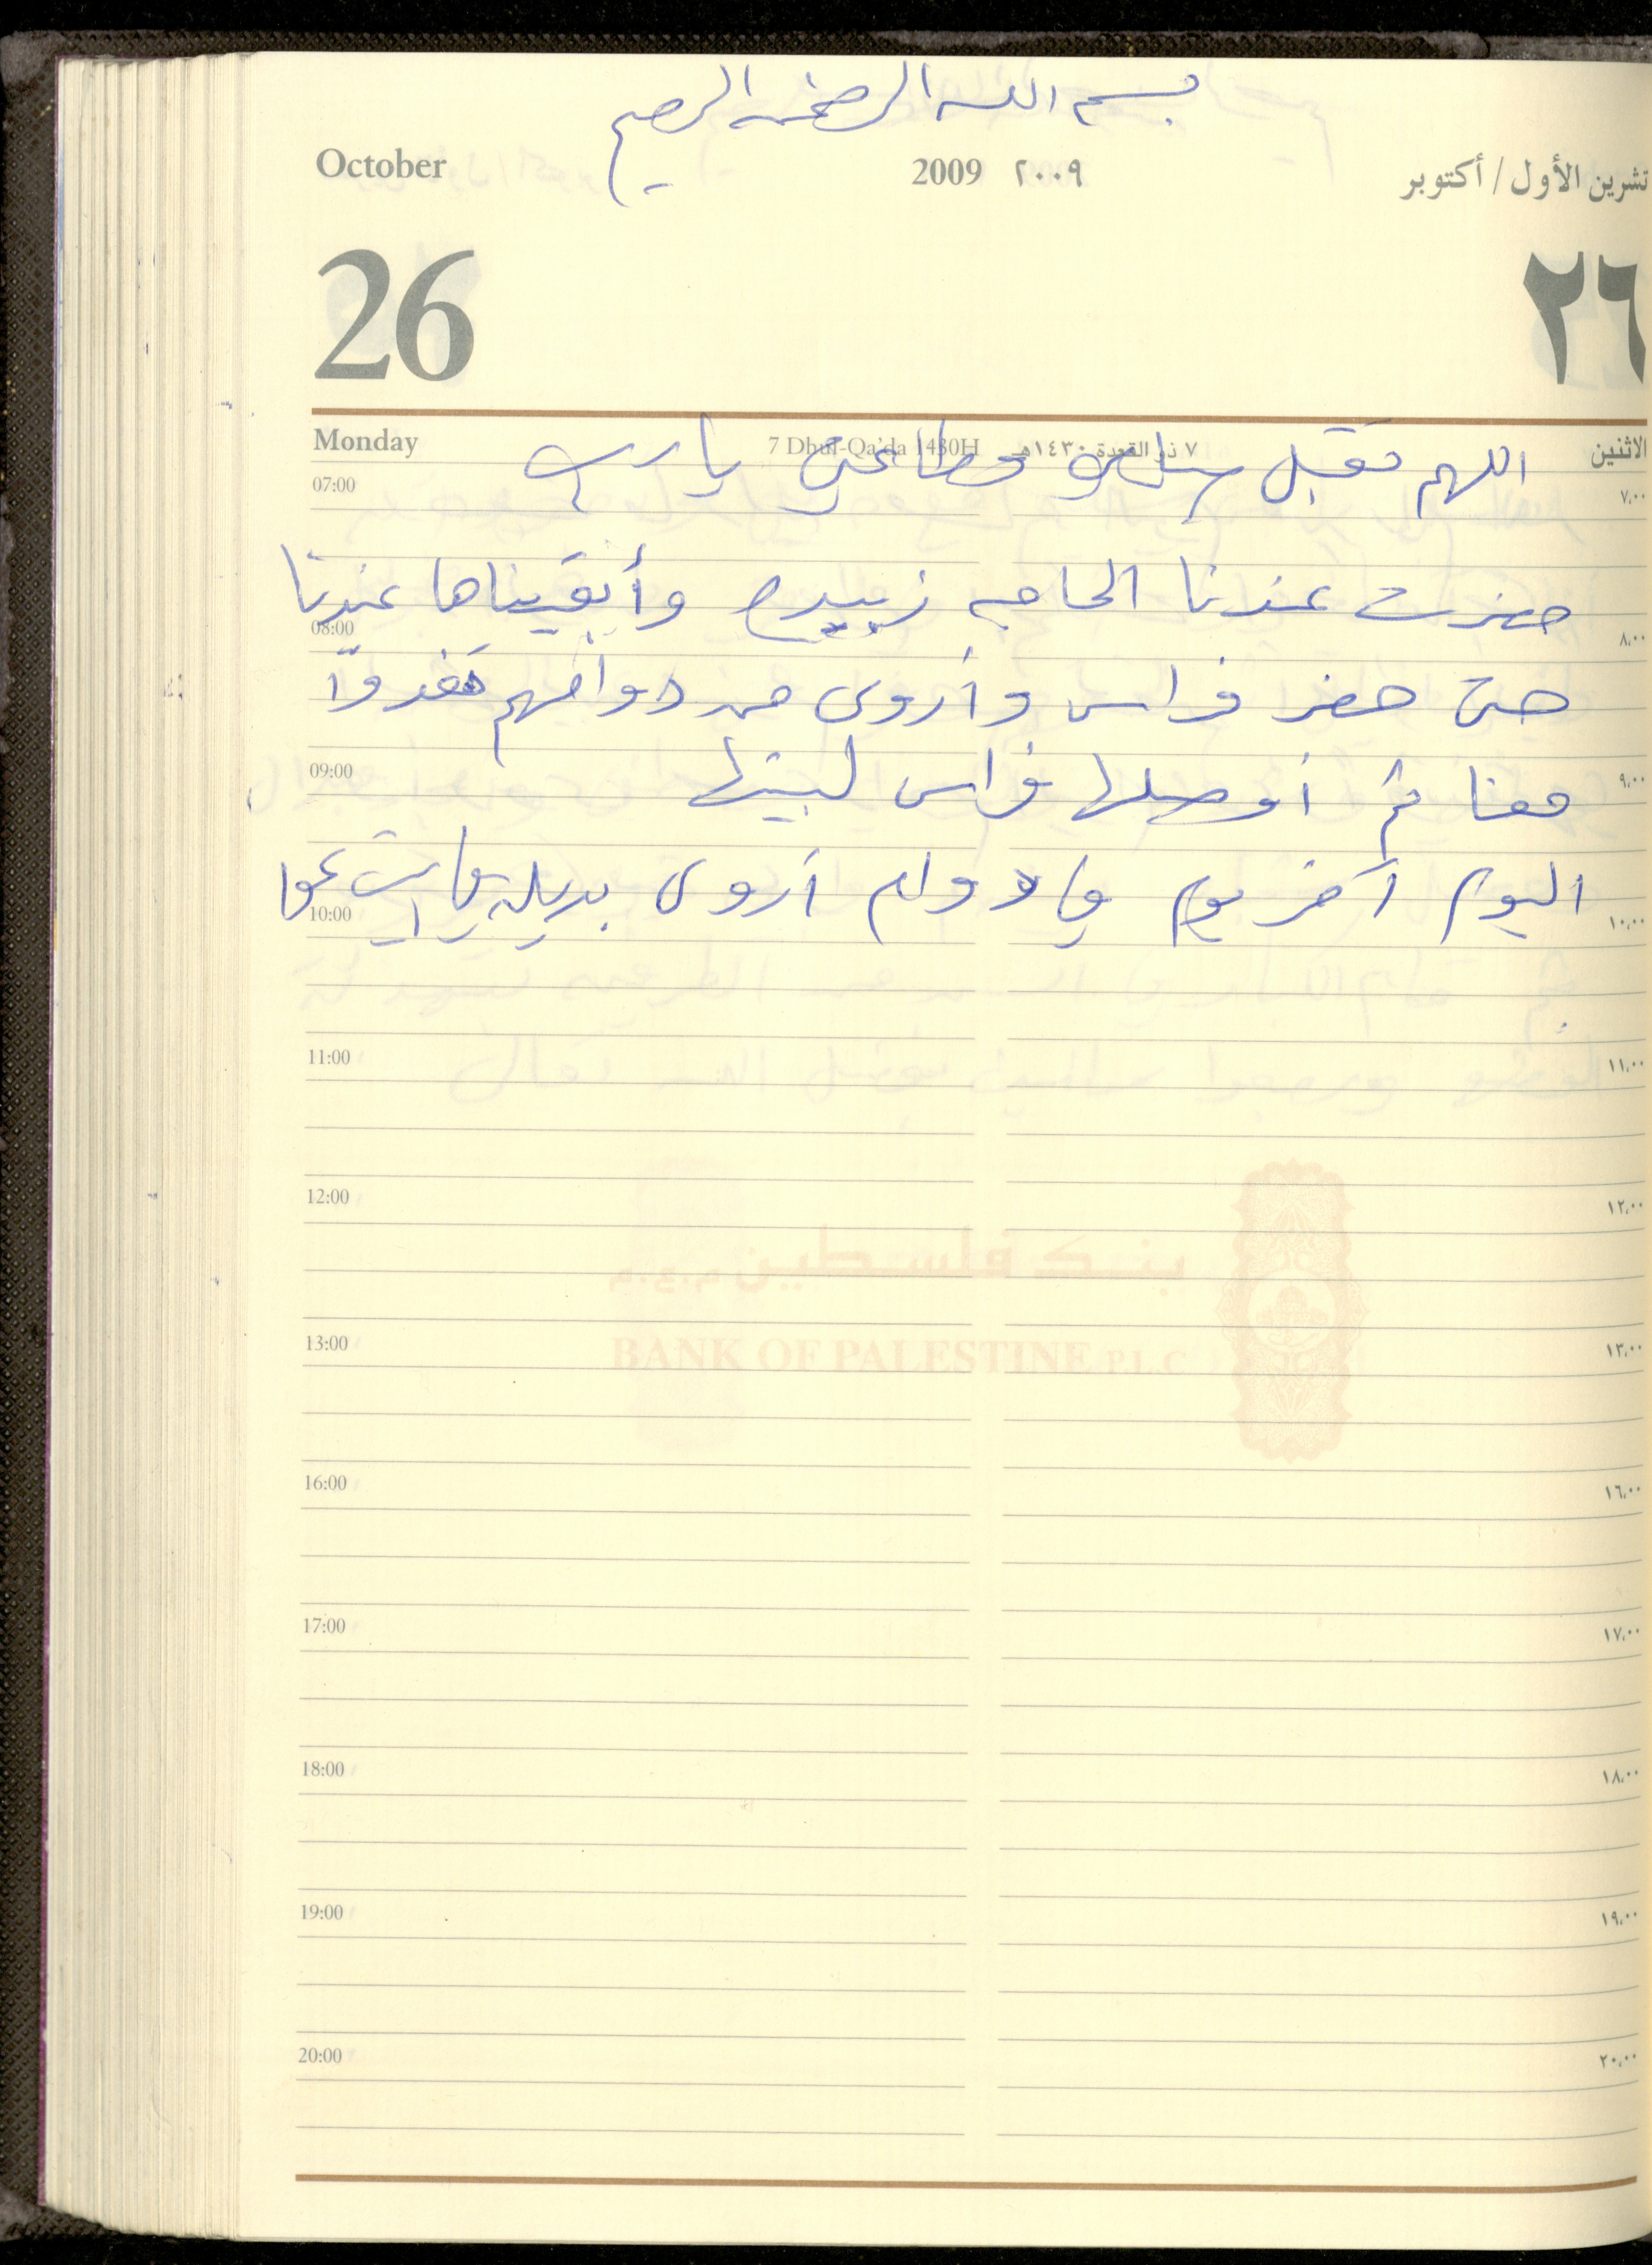 بسم الله الرحمن الرحيم
October 2009 ٢٠٠٩ تشرين الأول / أكتوبر
26 ٢٦
Monday 7 Dhul-Qa'da 1430H ٧ ذو القعدة ١٤٣٠هـ الاثنين
اللهم تقبل صلاتي وطاعتي يا رب
07:00 ٧،٠٠
حضرت عندنا الحاجه زبيده وأبقيناها عندنا
08:00 ٨،٠٠
حتى حضر فراس وأروى من دوامهم تغدوا
09:00 ٩،٠٠
معنا ثم أوصلها فراس لبيتها
اليوم آخر يوم في دوام أروى بديله
10:00 ١٠،٠٠
11:00 ١١،٠٠
12:00 ١٢،٠٠
بنك فلسطين م.ع.م
13:00 ١٣،٠٠
BANK OF PALESTINE P.L.C
16:00 ١٦،٠٠
17:00 ١٧،٠٠
18:00 ١٨،٠٠
19:00 ١٩،٠٠
20:00 ٢٠،٠٠